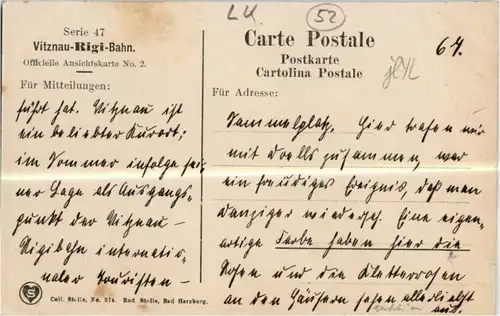 L.K.
52
64.
Serie 47
Vitznau-Rigi-Bahn.
Officielle Ansichtskarte No. 2.
Carte Postale
Postkarte
Cartolina Postale
Für Mitteilungen:
Für Adresse:
führt hat. Vitznau ist
ein beliebter Kurort;
im Sommer infolge sei-
ner Lage als Ausgangs-
punkt der Vitznau –
Rigibahn internatio-
naler Touristen –
Sammelplatz. Hier trafen wir
mit Dolls zusammen, war
ein freudiges Ereignis, daß man
Danziger wiedersah. Eine eigen-
artige Farbe haben hier die
Rosen und die Kletterrosen
an den Häusern sehen allerliebst
aus.
Coll. Stolle, No. 574. Rud Stolle, Bad Harzburg.